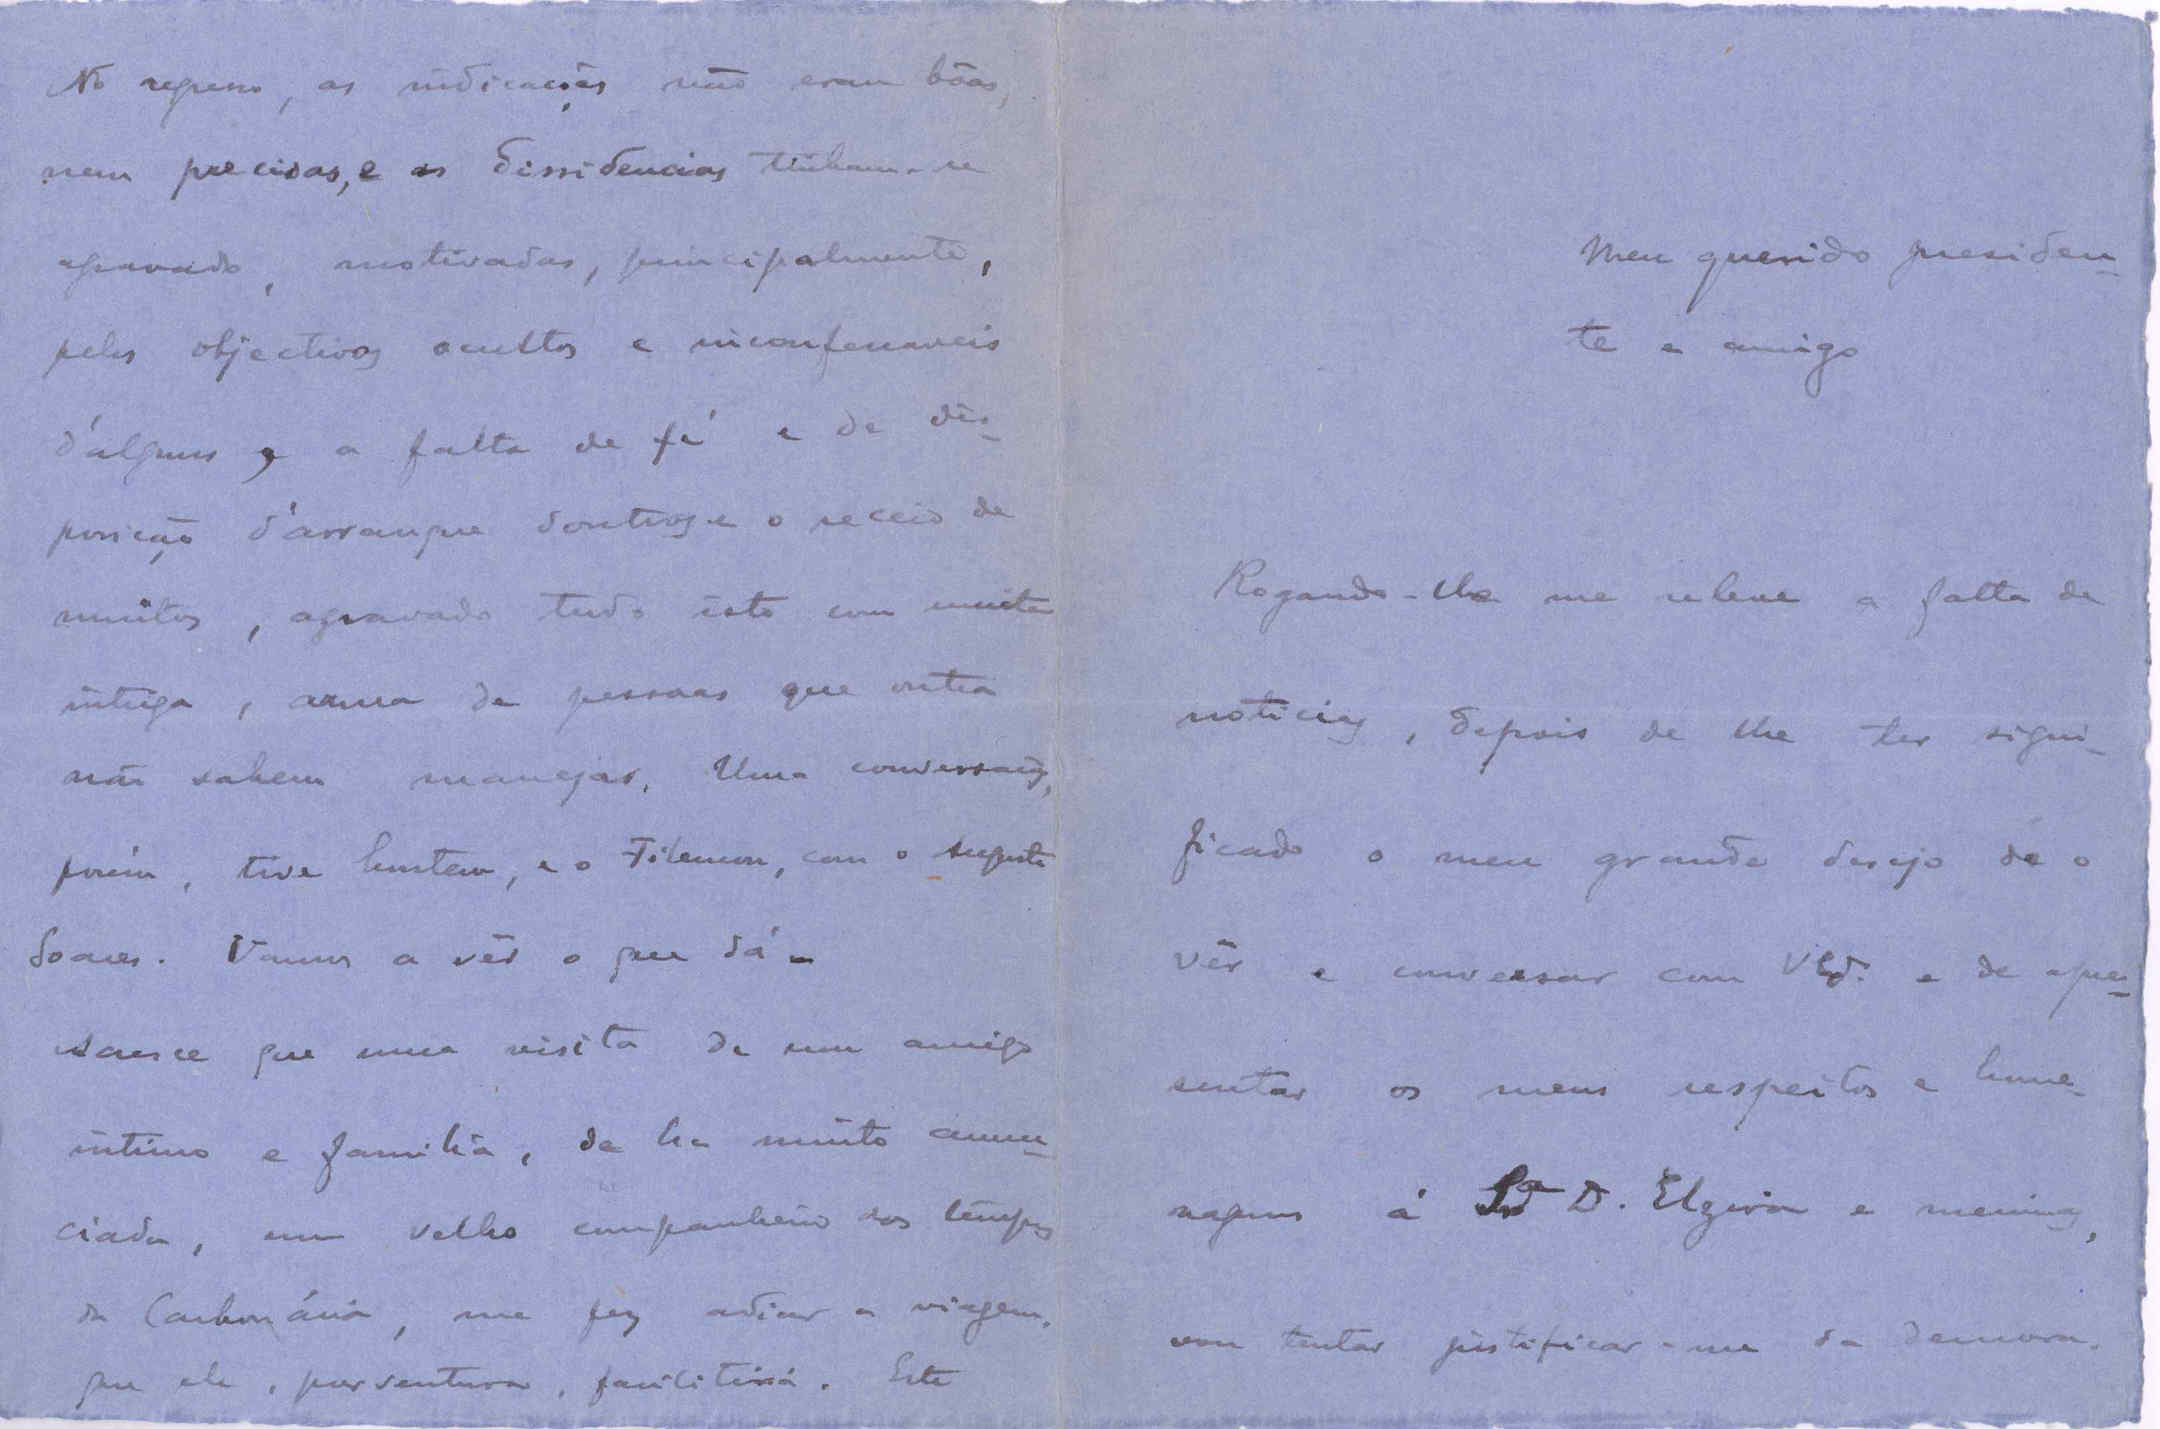 Meu querido presiden-
te e amigo
Rogando-lhe me releve a falta de
noticias, depois de lhe ter signi-
ficado o meu grande desejo de o
vêr e conversar com V. e de apre-
sentar os meus respeitos e home-
nagens á Sr.ª D. Elzira e meninas,
vou tentar justificar-me da demora.
No regresso, as indicações não eram bôas,
nem precisas, e as dissidencias tinham-se
agravado, motivadas, principalmente,
pelos objectivos ocultos e inconfessaveis
d'alguns, e a falta de fé e de dis-
posição d'arranque doutros e o receio de
muitos, agravado tudo isto com muita
intriga, arma de pessoas que outra
não sabem manejar. Uma conversação,
porém, tive hontem, e o Filemon, com o Augusto
Soares. Vamos a vêr o que dá.
Acresce que uma visita de um amigo
intimo e familia, de ha muito anun-
ciada, um velho companheiro dos tempos
da Carbonária, me fez adiar a viagem,
que ele, porventura, facilitará. Este